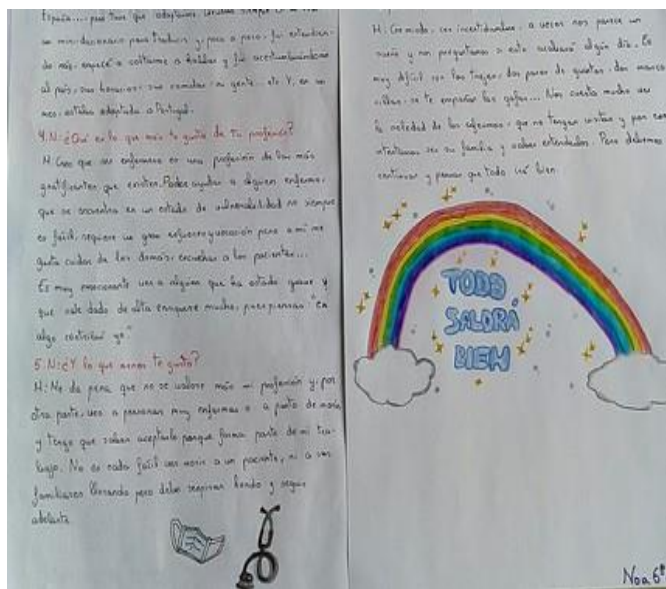 España.... pero tuve que adaptarme.
un mini-diccionario para traducir y, poco a poco, fui entendien-
do más, empecé a soltarme a hablar y fui acostumbrándome
al país, sus horarios, sus comidas, su gente... etc Y, en un
mes, estaba adaptada a Portugal.
4. N: ¿Qué es lo que más te gusta de tu profesión?
M: Creo que ser enfermera es una profesión de las más
gratificantes que existen. Poder ayudar a alguien enfermo,
que se encuentra en un estado de vulnerabilidad no siempre
es fácil, requiere un gran esfuerzo y vocación pero a mí me
gusta cuidar de los demás, escuchar a los pacientes...
Es muy emocionante ver a alguien que ha estado grave y
que sale dado de alta enriquece mucho, pues piensas "En
algo contribuí yo."
5. N: ¿Y lo que menos te gusta?
M: Me da pena que no se valore más mi profesión y, por
otra parte, ver a personas muy enfermas o a punto de morir
y tengo que saber aceptarlo porque forma parte de mi tra-
bajo. No es nada fácil ver morir a un paciente, ni a sus
familiares llorando pero debes respirar hondo y seguir
adelante.
M: Con miedo, con incertidumbre, a veces nos parece un
sueño y nos preguntamos si esto acabará algún día. Es
muy difícil con los trajes, dos pares de guantes, dos masca-
rillas, se te empañan las gafas... Nos cuesta mucho ver
la soledad de los enfermos, que no tengan visitas y por eso
intentamos ser su familia y saber entenderlos. Pero debemos
continuar y pensar que todo irá bien.
TODO
SALDRÁ
BIEN
Noa 6º